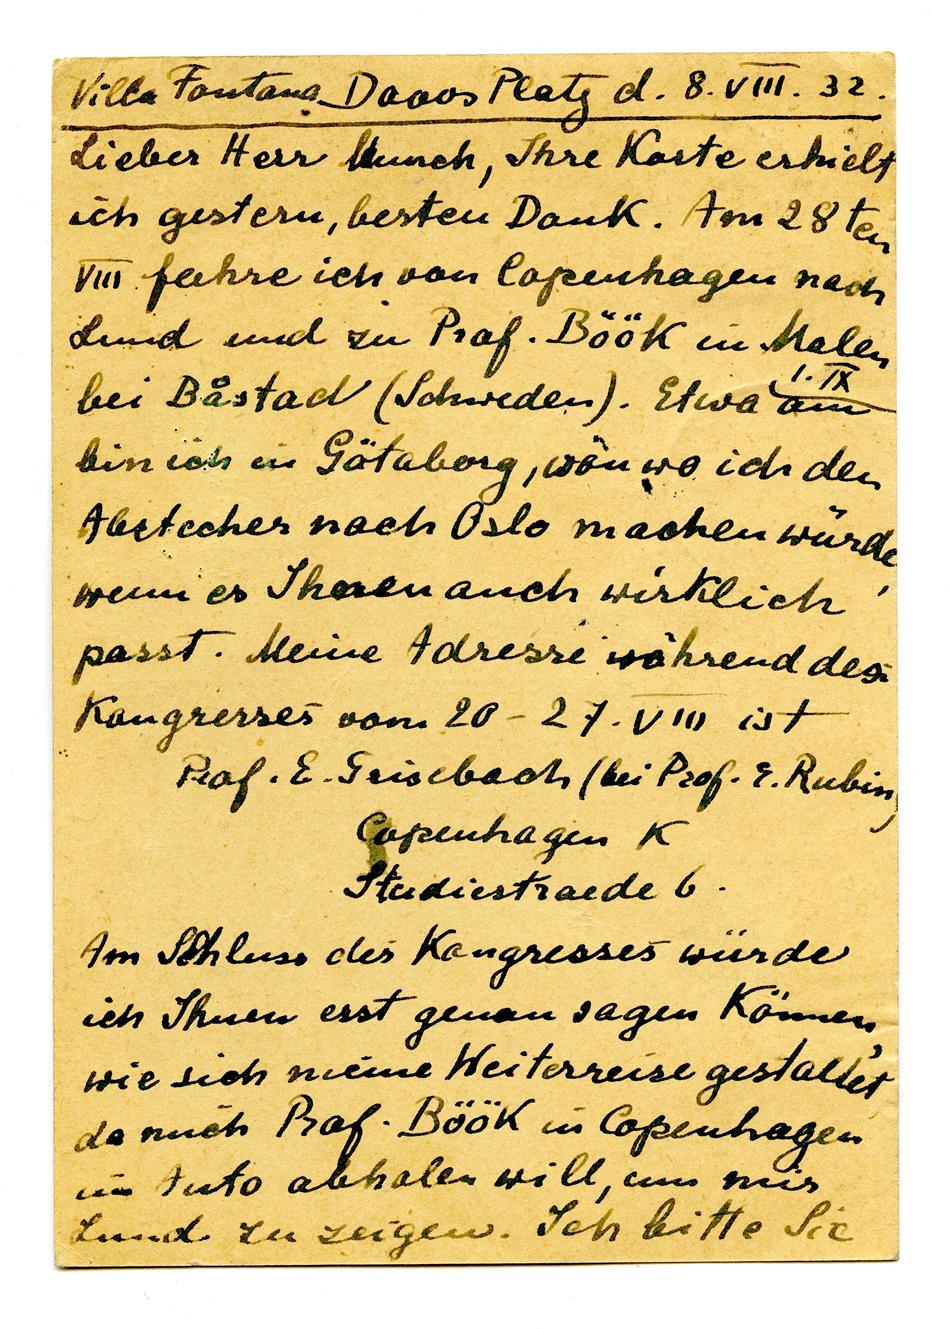 Villa Fontana Davos Platz d. 8. VIII. 32.
Lieber Herr Munch, Ihre Karte erhielt
ich gestern, besten Dank. Am 28ten
VIII fahre ich von Copenhagen nach
Lund und zu Prof. Böök in Malen
bei Båstad (Schweden). Etwa am 1. IX
bin ich in Götaborg, von wo ich den
Abstecher nach Oslo machen würde,
wenn es Ihnen auch wirklich
passt. Meine Adresse während des
Kongresses vom 20 - 27. VIII ist
Prof. E. Grisebach (bei Prof. E. Rubin)
Copenhagen K
Studiestraede 6.
Am Schluss des Kongresses würde
ich Ihnen erst genau sagen Können,
wie sich meine Weiterreise gestaltet
da mich Prof. Böök in Copenhagen
im Auto abholen will, um mir
Lund zu zeigen. Ich bitte Sie